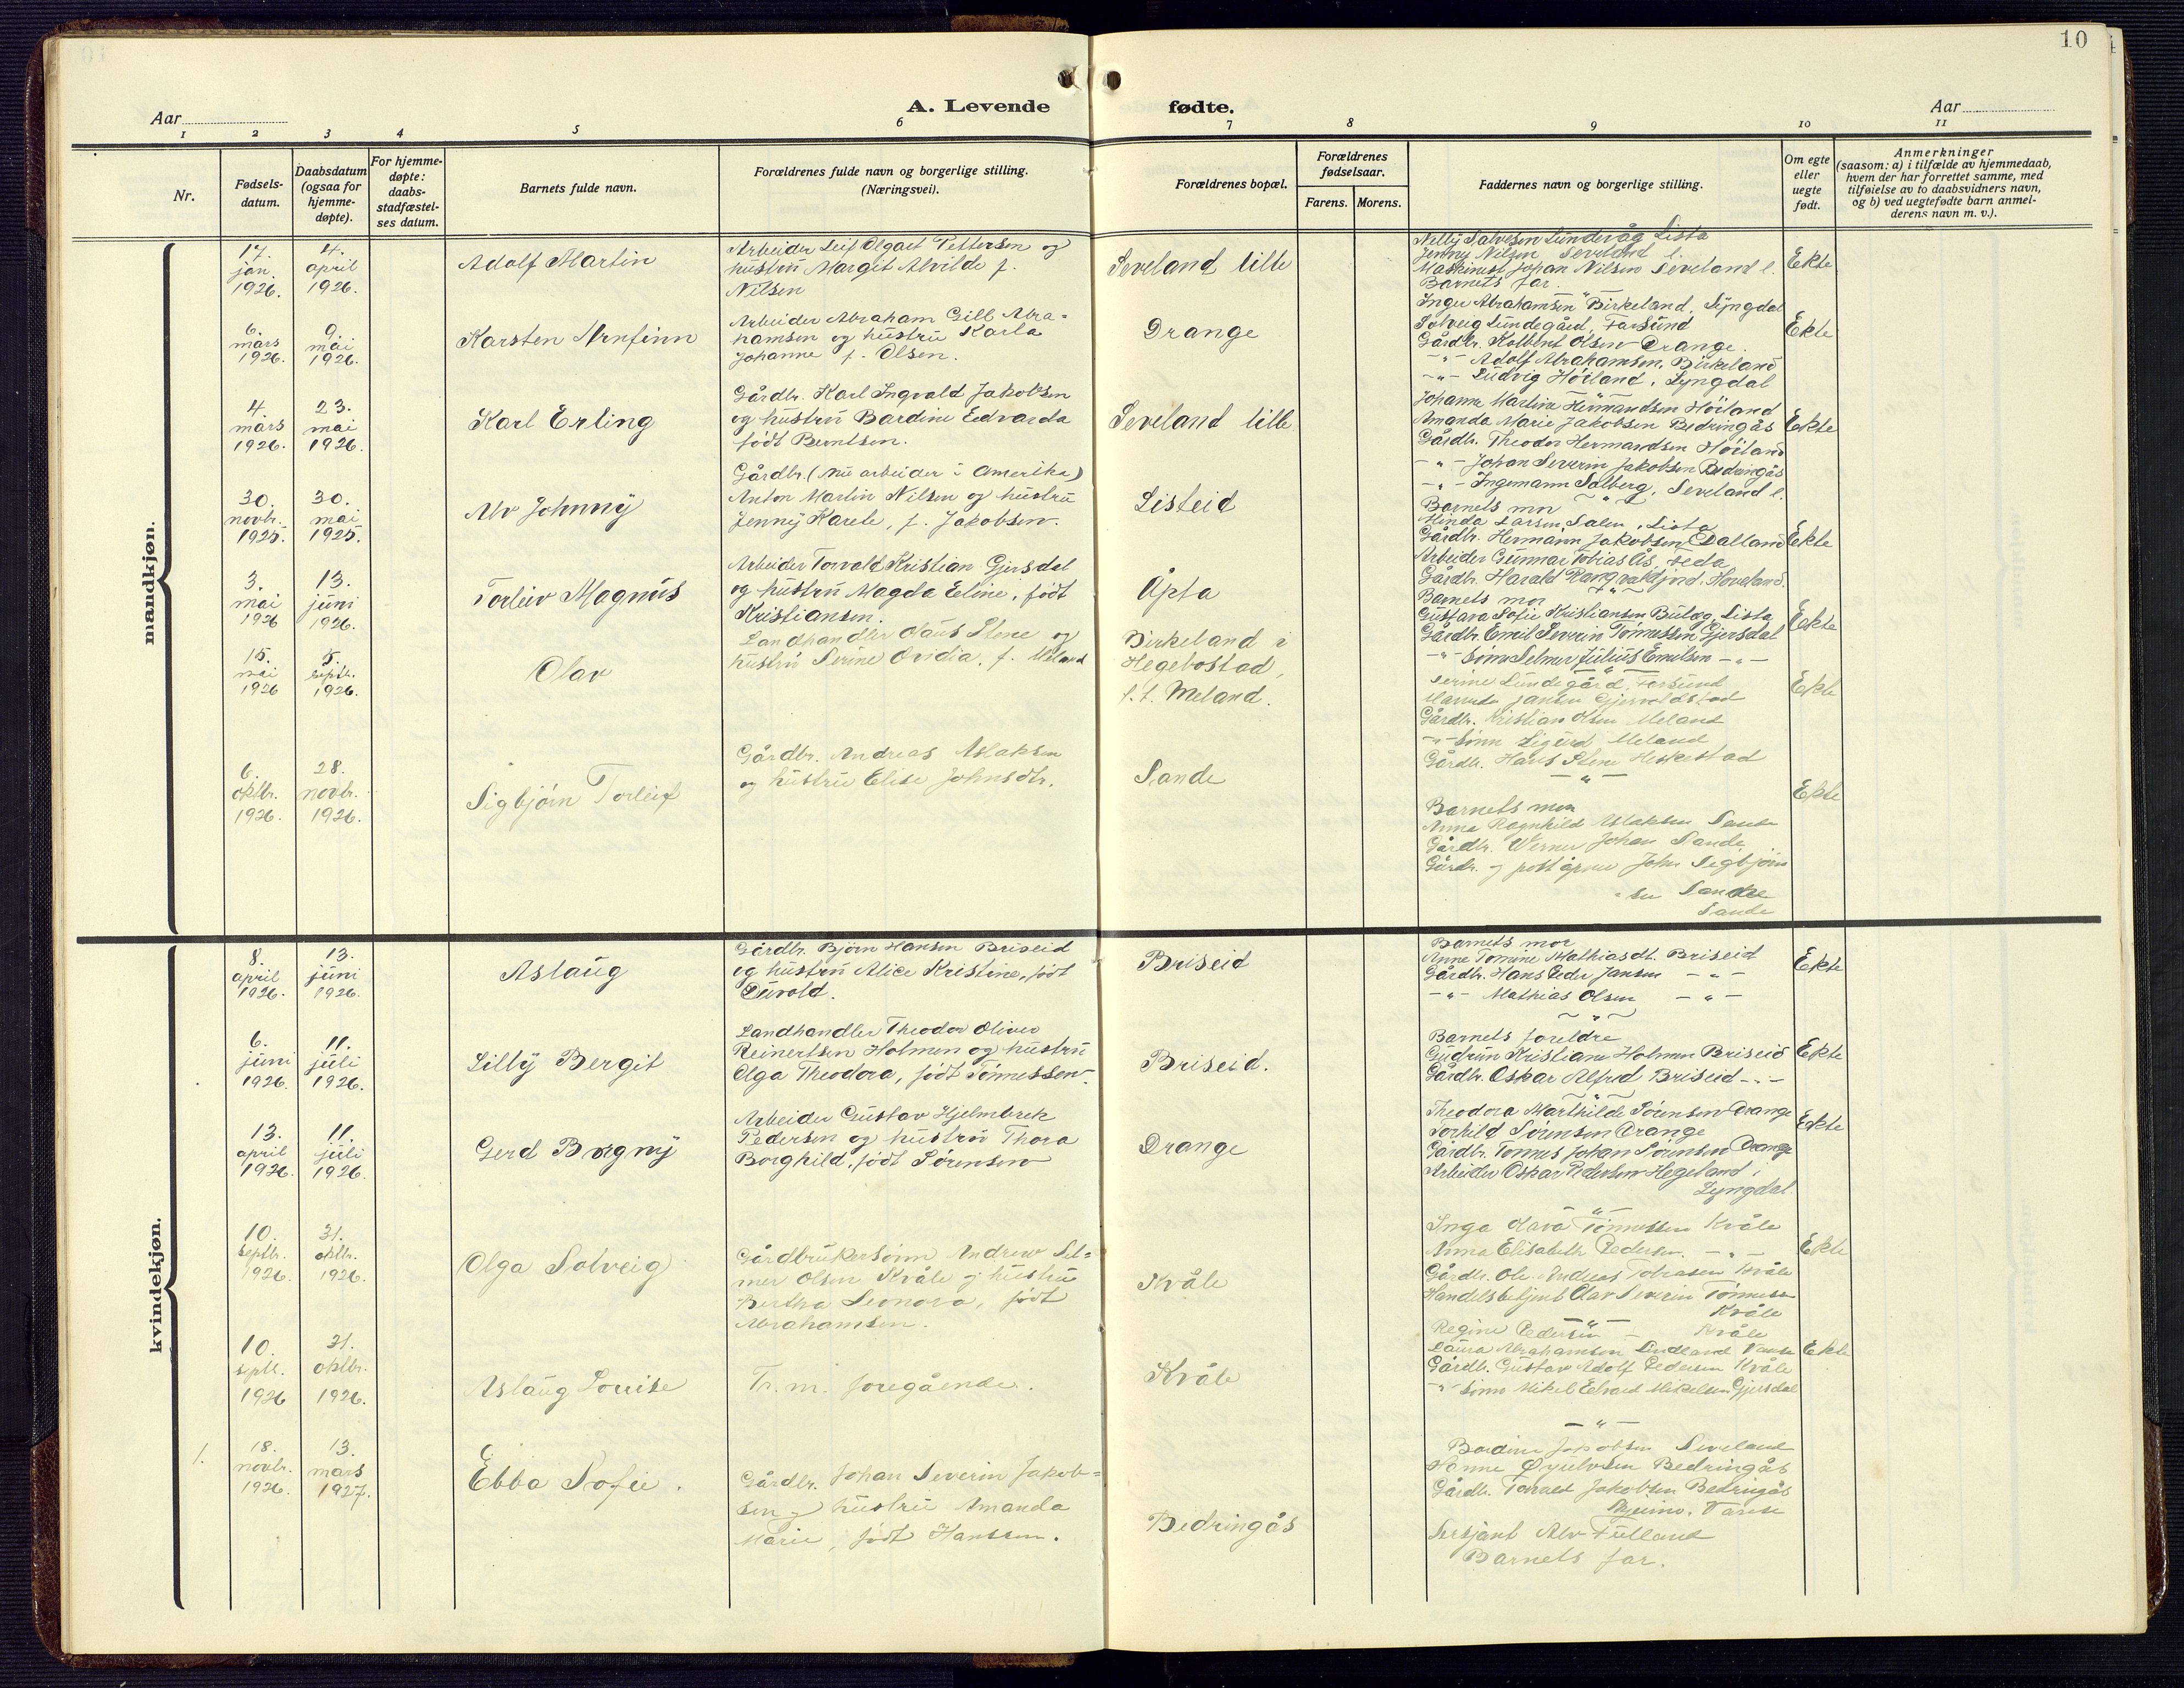 10
A. Levende fødte.
Aar
Aar
1 2 3 4 5 6 7 8 9 10 11
Nr.
Fødsels-
datum.
Daabsdatum
(ogsaa for
hjemme-
døpte).
For hjemme-
døpte:
daabs-
stadfæstel-
ses datum.
Barnets fulde navn.
Forældrenes fulde navn og borgerlige stilling.
(Næringsvei).
Forældrenes bopæl.
Forældrenes
fødselsaar.
Farens. Morens.
Faddernes navn og borgerlige stilling.
Om egte
eller
uegte
født.
Anmerkninger
(saasom: a) i tilfælde av hjemmedaab,
hvem der har forrettet samme, med
tilføielse av to daabsvidners navn,
og b) ved uegtefødte barn anmel-
derens navn m. v.).
mandkjøn.
17.
jan.
1926.
4.
april
1926.
Adolf Martin
Arbeider Leif Olgart Pettersen og
hustru Margit Alvilde f.
Nilsen
Seveland lille
Nelly Salvesen Lundevåg Lista
Jenny Nilsen Seveland l.
Maskinist Johan Nilsen Seveland l.
Barnets far.
Ekte
6.
mars
1926.
9.
mai
1926.
Karsten Arnfinn
Arbeider Abraham Gill Abra=
hamsen og hustru Karla
Johanne f. Olsen.
Drange
Inger Abrahamsen Birkeland, Lyngdal
Solveig Lundegård, Farsund
Gårdbr. Kolbent Olsen Drange.
-"- Adolf Abrahamsen, Birkeland
-"- Ludvig Høiland, Lyngdal
Ekte
4.
mars
1926.
23.
mai
1926.
Karl Erling
Gårdbr. Karl Ingvald Jakobsen
og hustru Bardine Edvarda
født Berntsen.
Seveland lille.
Johanne Martine Hermandsen Høiland
Amanda Marie Jakobsen Bedringås
Gårdbr. Theodor Hermandsen Høiland
-"- Johan Severin Jakobsen Bedringås
-"- Ingemann Salberg, Seveland l.
Ekte
30.
novbr.
1925.
30.
mai
1925.
Alv Johnny
Gårdbr. (nu arbeider i Amerika)
Anton Martin Nilsen og hustru
Jenny Karele, f. Jakobsen.
Listeid
Barnets mor
Minda Larsen, Salen, Lista
Gårdbr. Hermann Jakobsen Dalland
Arbeider Gunnar Tobias Ås, Feda
Gårdbr. Harald Rangvald Fjord, Hoveland.
Ekte
3.
mai
1926
13.
juni
1926.
Torleiv Magnus
Arbeider Torvald Kristian Gjersdal
og hustru Magda Eline, født
Kristiansen.
Åpta
Barnets mor
Gustava Sofie Kristiansen Butog, Lista
Gårdbr. Emil Severin Tønnessen Gjersdal
-"- sønn Selmer Julius Emilsen -"-
Ekte
15.
mai
1926
5.
septr.
1926.
Olav
Landhandler Olaus Stene og
hustru Serine Ovidia, f. Meland
Birkeland i
Hegebostad,
f. t. Meland.
Serine Lundegård, Farsund
Jansen Gjervoldstad
Gårdbr. Kristian Olsen Meland
-"- sønn Sigurd Meland
Gårdbr. Hans Stene Heskestad
Ekte
6.
oktbr.
1926.
28.
novbr.
1926.
Sigbjørn Torleif
Gårdbr. Andreas Aslaksen
og hustru Elise Johnsdtr.
Sande
Barnets mor
Anna Ragnhild Aslaksen Sande
Gårdbr. Werner Johan Sande
Gårdbr. og poståpner John Segbjørn
=sen Sande
Sande
Ekte
kvindekjøn.
8.
april
1926.
13.
juni
1926.
Aslaug
Gårdbr. Bjørn Hansen Briseid
og hustru Alice Kristine, født
Duvold.
Briseid
Barnets mor
Anne Tomine Mathiasdt. Briseid
Gårdbr. Hans Peder Jansen -"-
-"- Mathias Olsen -"-
Ekte
6.
juni
1926.
11.
juli
1926.
Lilly Bergit
Landhandler Theodor Oliver
Reinertsen Holmen og hustru
Olga Theodora, født Tønnessen.
Briseid.
Barnets foreldre
Gudrun Kristiane Holmen Briseid
Gårdbr. Oskar Alfred Briseid -"-
Ekte
13.
april
1926.
11.
juli
1926.
Gerd Borgny
Arbeider Gustav Hjelmbrek
Pedersen og hustru Thora
Borghild, født Sørensen
Drange
Theodora Marthilde Sørensen Drange
Torhild Sørensen Drange
Gårdbr. Tomas Johan Sørensen Drange
Arbeider Oskar Pedersen Hegeland i
Lyngdal.
Ekte
10.
septbr.
1926.
31.
oktbr.
1926.
Olga Solveig
Gårdbrukersønn Andrew Sel=
mer Olsen Kvåle og hustru
Bertha Leonora, født
Abrahamsen.
Kvåle
Inga Olava Tønnessen Kvåle
Anna Elisabeth Pedersen -"-
Gårdbr. Ole Andreas Tobiasen Kvåle
Handelsbetjent Olav Severin Tønnessen
Kvåle
Ekte
10.
septr.
1926
31.
oktbr.
1926.
Aslaug Lovise
Tv. m. foregående.
Kvåle
Regine Pedersen Kvåle
Laura Abrahamsen Lindland Vanse
Gårdbr. Gustav Adolf Pedersen Kvåle
-"- sønn Mikal Edvard Mikalsen Gjersdal
Ekte
1.
18.
novbr.
1926.
13.
mars
1927.
Ebba Sofie.
Gårdbr. Johan Severin Jakob=
sen og hustru Amanda
Marie, født Hanssen.
Bedringås
Bardine Jakobsen Seveland
Øyulvsen Bedringås
Gårdb. Torvald Jakobsen Bedringås
Vanse
Sersjant Alv Fulland
Barnets far.